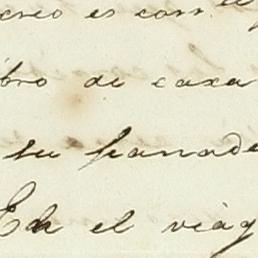 creo es corr
bro de caxa
su ganade
En el viág